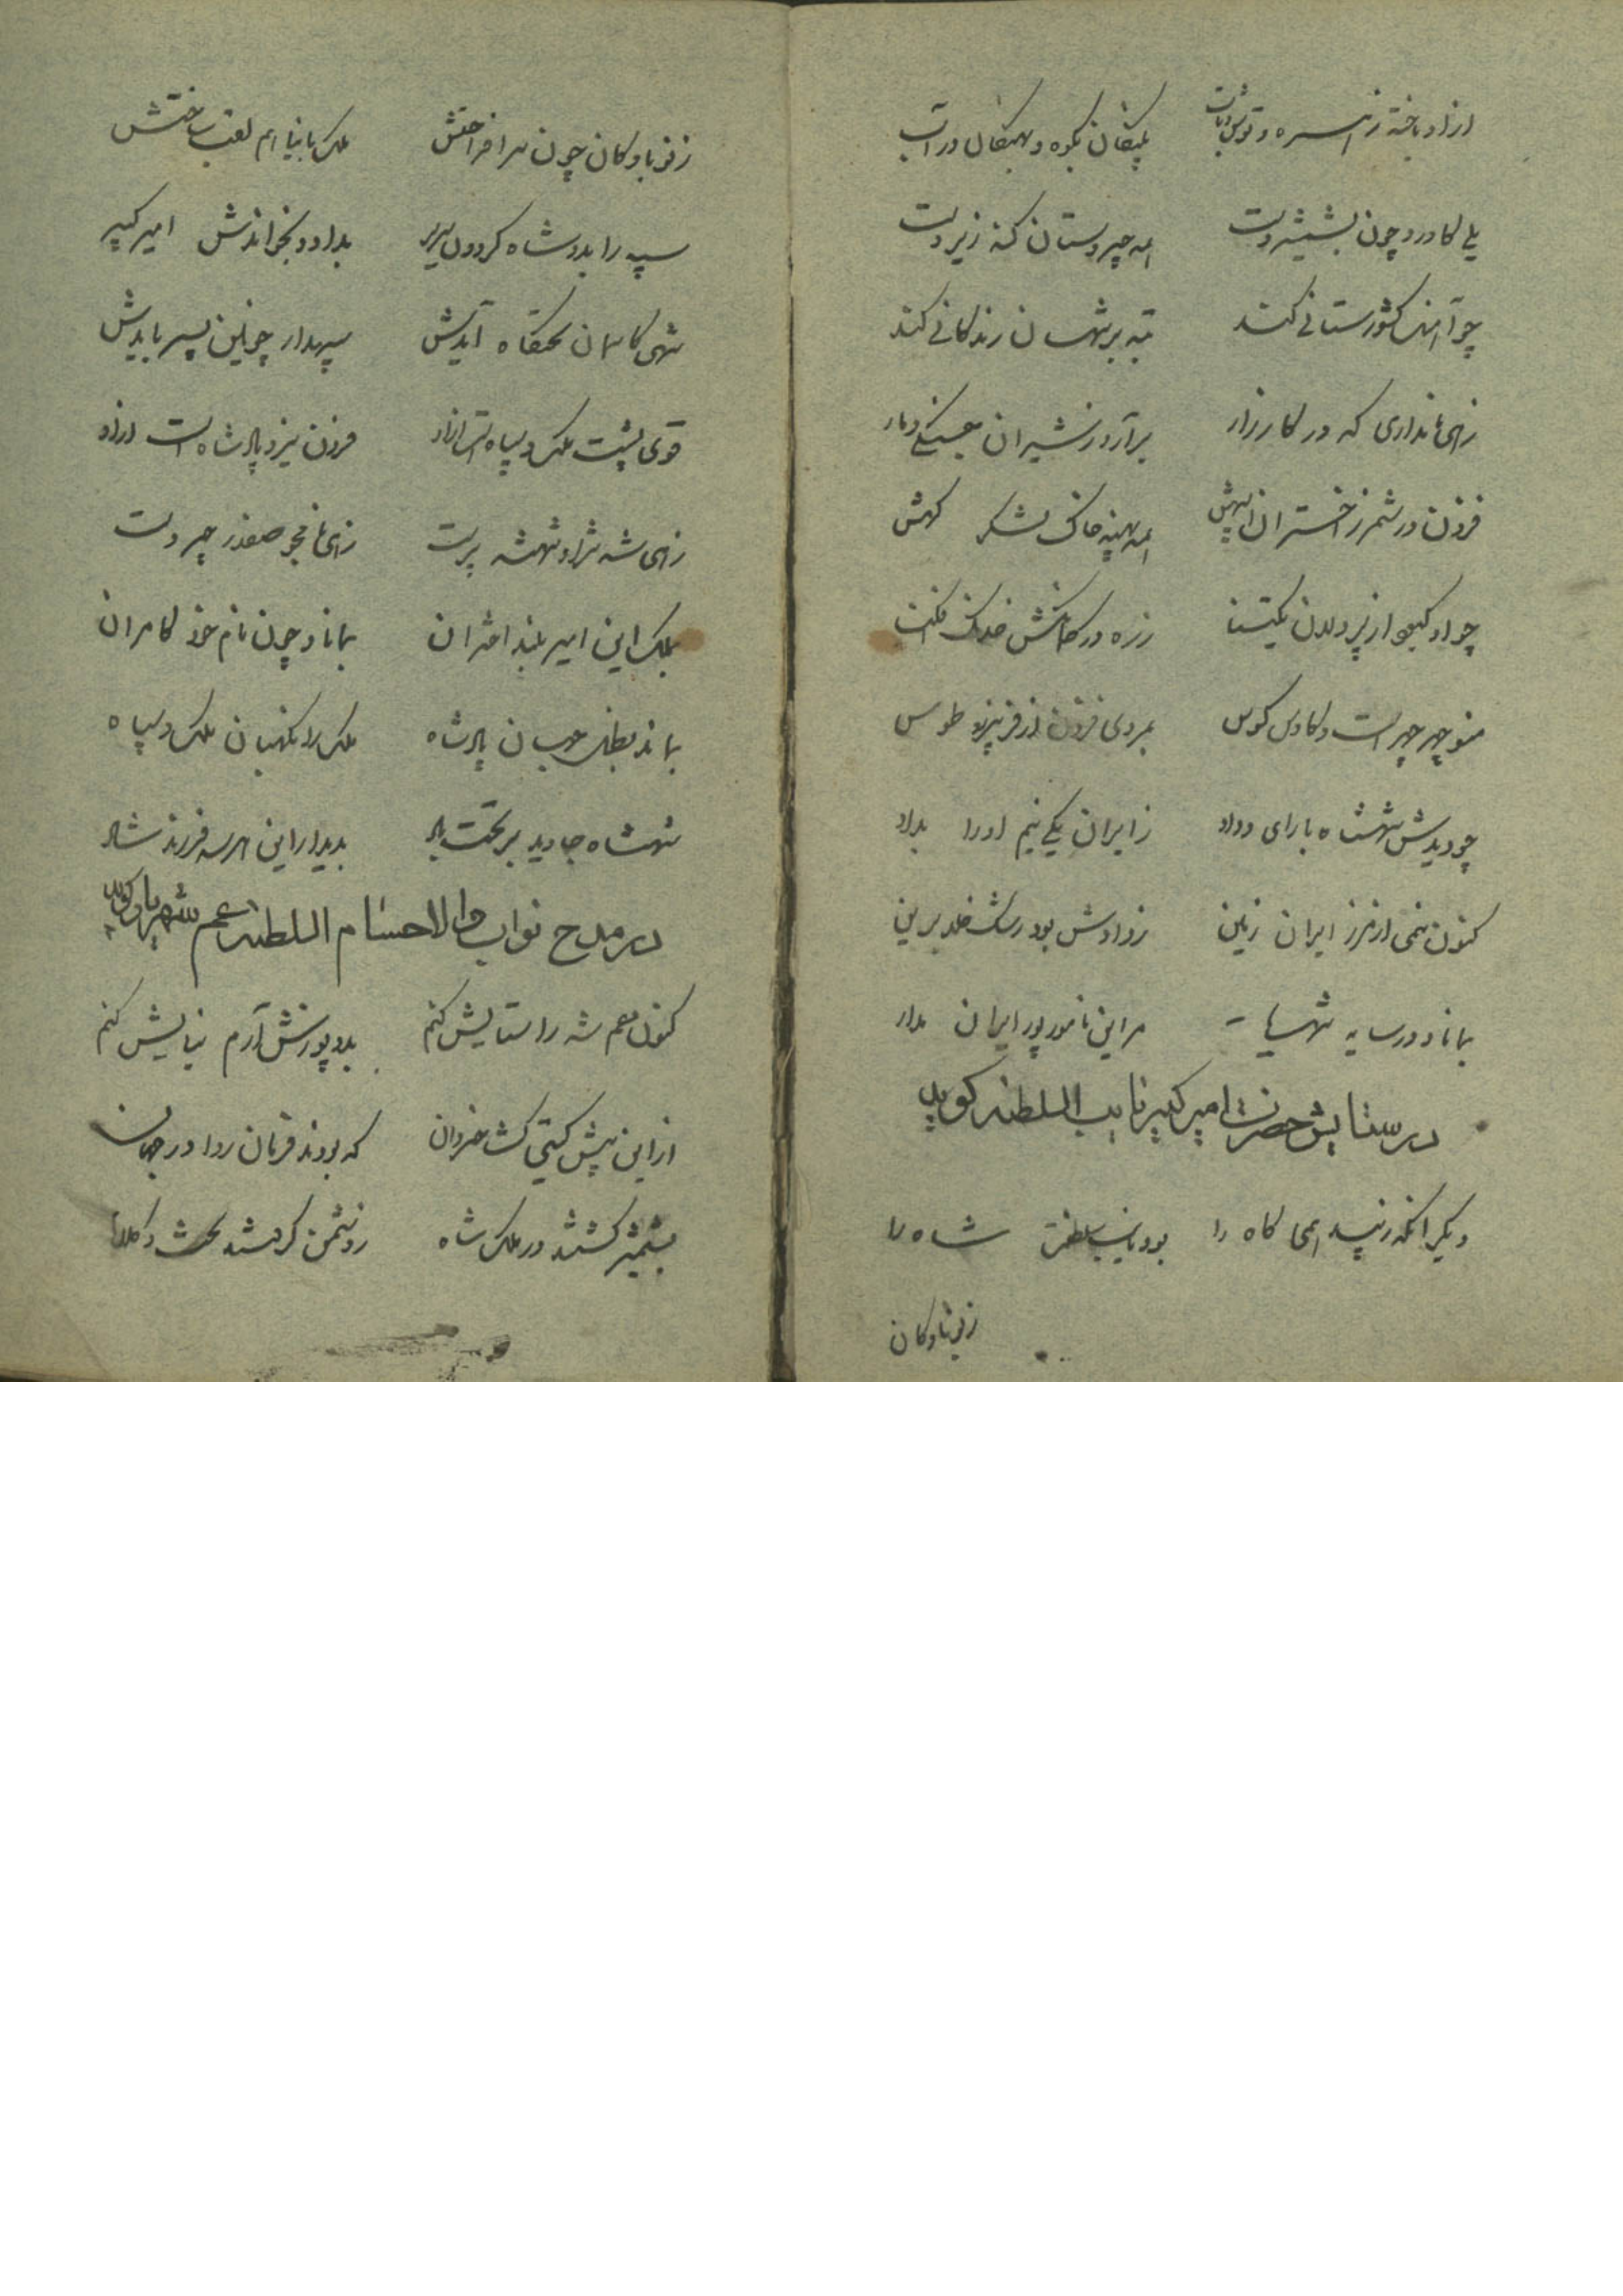 ازو باخته زهره و توش و تاب پلنگان بکوه و نهنگان در آب
یلی کاورد چون بشمشیر دست همه چیره دستان کند زیر دست
چو آهنگ کشورستانی کند تبه بر شهان زندگانی کند
زهی نامداری که در کارزار برآرد ز شیران جنگی دمار
فزون در شمر ز اختران انهش همه پهنه خاک لشکر کهش
چو او کینه از پر دلان زره در
منوچهر چهر است و کاوس کوس بمردی فزون از فریبرز و طوس
چو دیدش شهنشاه با رای و داد ز ایران یکی نیم او را بداد
کنون نیمی از مرز ایران زمین ز دادش بود رشک خلد برین
بماناد در سایه شهریار مر این نامور پور ایران مدار
در ستایش حضرت امیر کبیر نایب السلطنه گوید
دیگر آنکه زیبد همی گاه را بود نایب سلطنت شاه را
زنر بادکان
زنر بادکان چون سرافراختش ملک با نیا هم لقب ساختش
سپه را بدو شاه گردون سریر بداد و بخواندش امیر کبیر
شهی کاسمان تختگاه آیدش سپهدار چونین پسر بایدش
قوی پشت ملک و سپاه است ازو فزون نیروی پادشاه است ازو
زهی شه نژاد و شهنشه پرست زهی نامجو صفدر چیره دست
بملک این امیر بلند اختران بماناد چون نام خود کامران
بماند بظل پادشاه ملک را نگهبان ملک و سپاه
شهنشاه جاوید بر تخت باد بدیدار این هر سه فرزند شاد
در مدح نواب والا حسام السلطنه عم شهریار گوید
کنون عم شه را ستایش کنم بدو پوزش آرم نیایش کنم
از این پیش گیتی گشا خسروان که بودند فرمان روا در جهان
بشمشیر گشتند در ملک شاه ز دشمن گرفتند تخت و کلاه